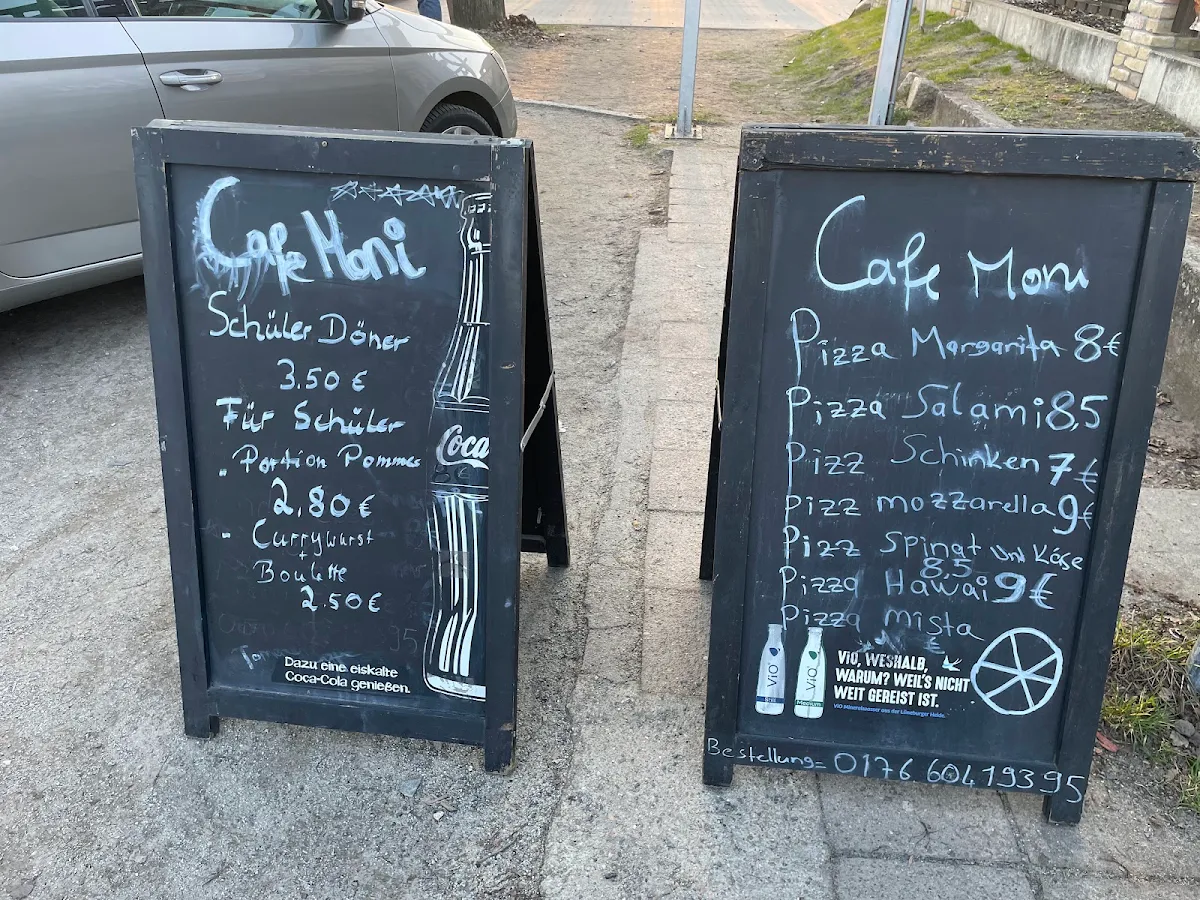 Cafe Moni
Schüler Döner
3.50 €
Für Schüler
- Portion Pommes
2,80 €
- Currywurst
+
Boulette
2.50€
Coca
Dazu eine eiskalte
Coca-Cola genießen.
Cafe Moni
Pizza Margarita 8€
Pizza Salami 8,5
Pizz Schinken 7€
Pizz mozzarella 9€
Pizz Spinat und Käse
8,5
Pizza Hawai 9€
Pizza mista
ViO ViO
Still Medium
ViO, WESHALB,
WARUM? WEIL'S NICHT
WEIT GEREIST IST.
ViO Mineralwasser aus der Lüneburger Heide.
Bestellung= 0176 604 193 95